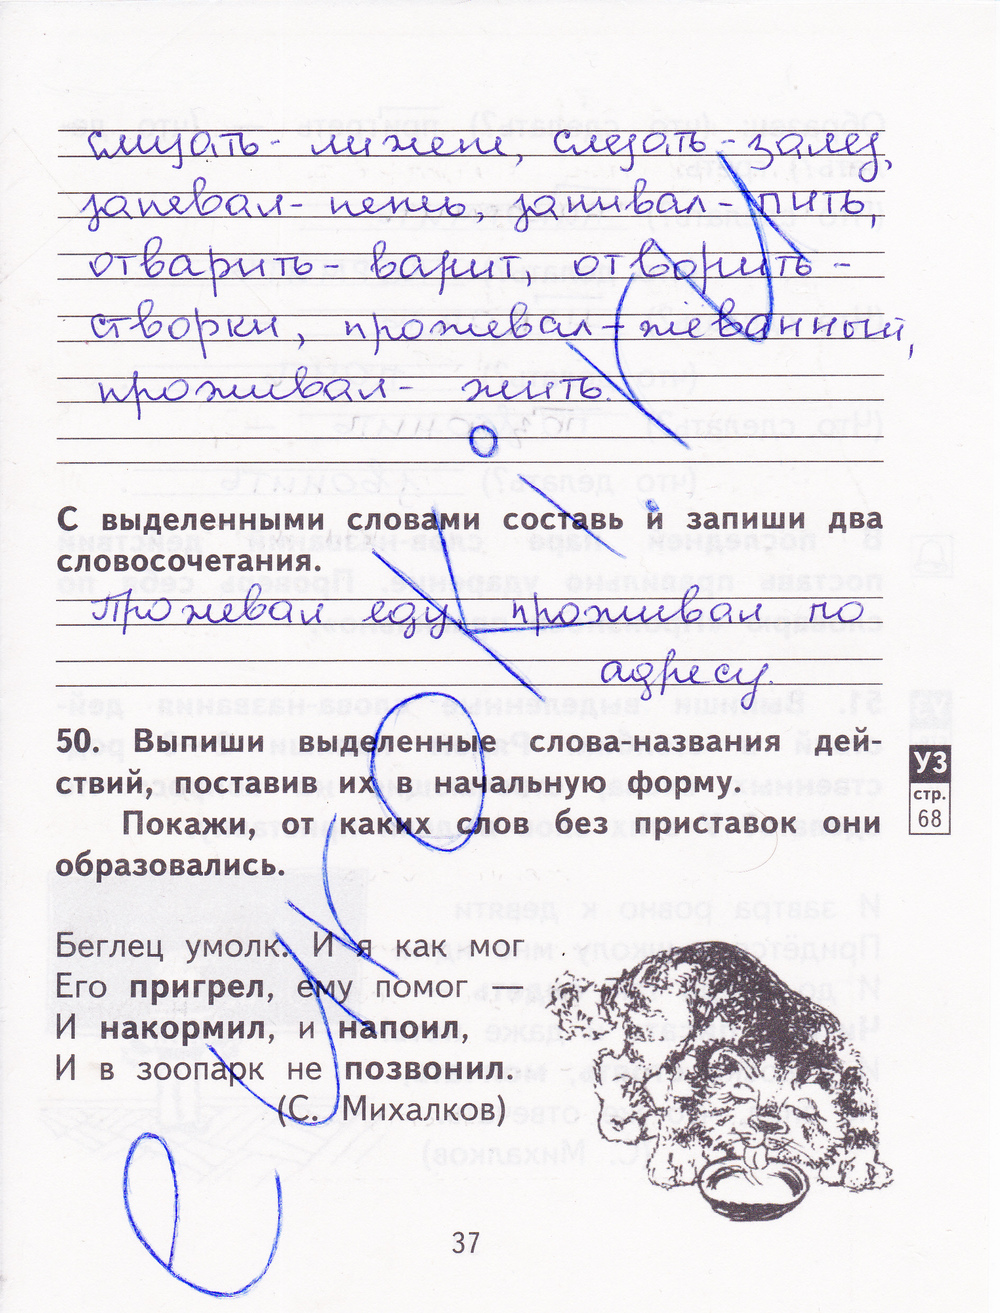 слизать - лижет, слезать - залез,
запевал - певец, запивал - пить,
отварить - варит, отворить -
створки, прожевал - жёванный,
проживал - жить.
С выделенными словами составь и запиши два
словосочетания.
Прожевал еду, проживал по
адресу.
50. Выпиши выделенные слова-названия дей-
ствий, поставив их в начальную форму.
УЗ
стр.
68
Покажи, от каких слов без приставок они
образовались.
Беглец умолк. И я как мог
Его пригрел, ему помог –
И накормил, и напоил,
И в зоопарк не позвонил.
(С. Михалков)
37